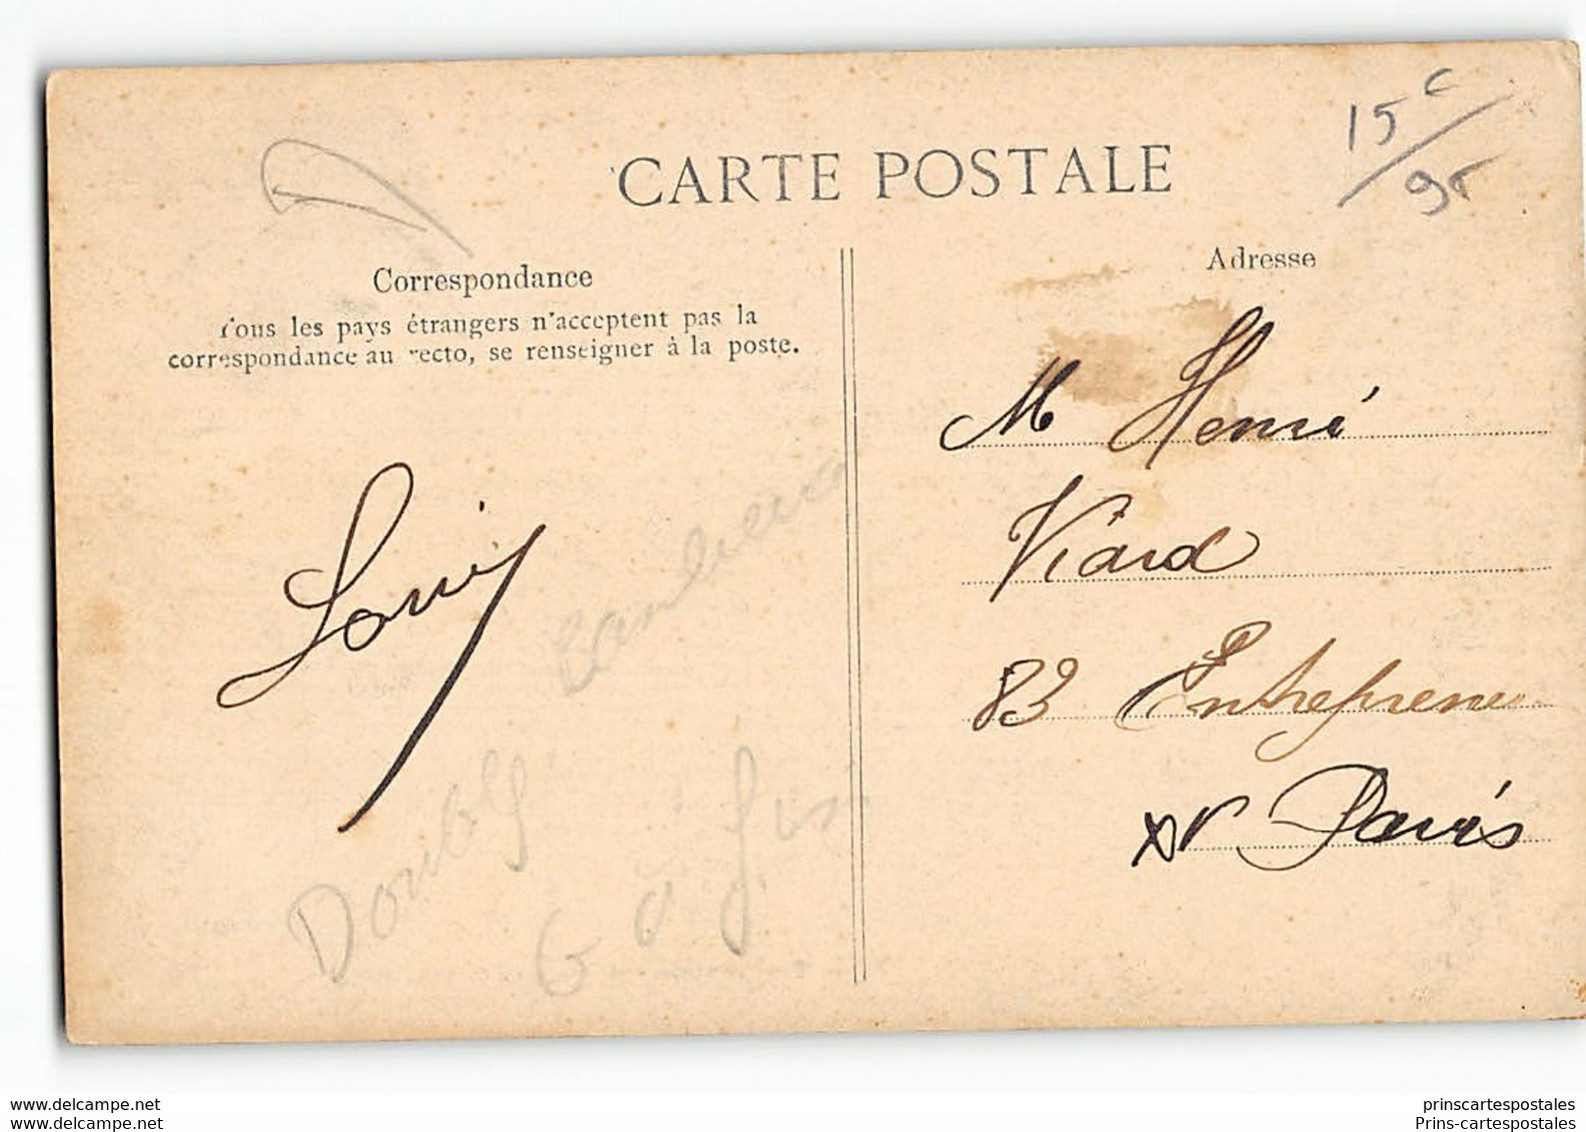 15 c / 95
CARTE POSTALE
Correspondance
Tous les pays étrangers n'acceptent pas la
correspondance au recto, se renseigner à la poste.
Louis
Banlieue
Double
G
Adresse
M Henri
Viard
83 Entrepreneu
xv Paris
www.delcampe.net
www.delcampe.net
prinscartespostales
Prins-cartespostales